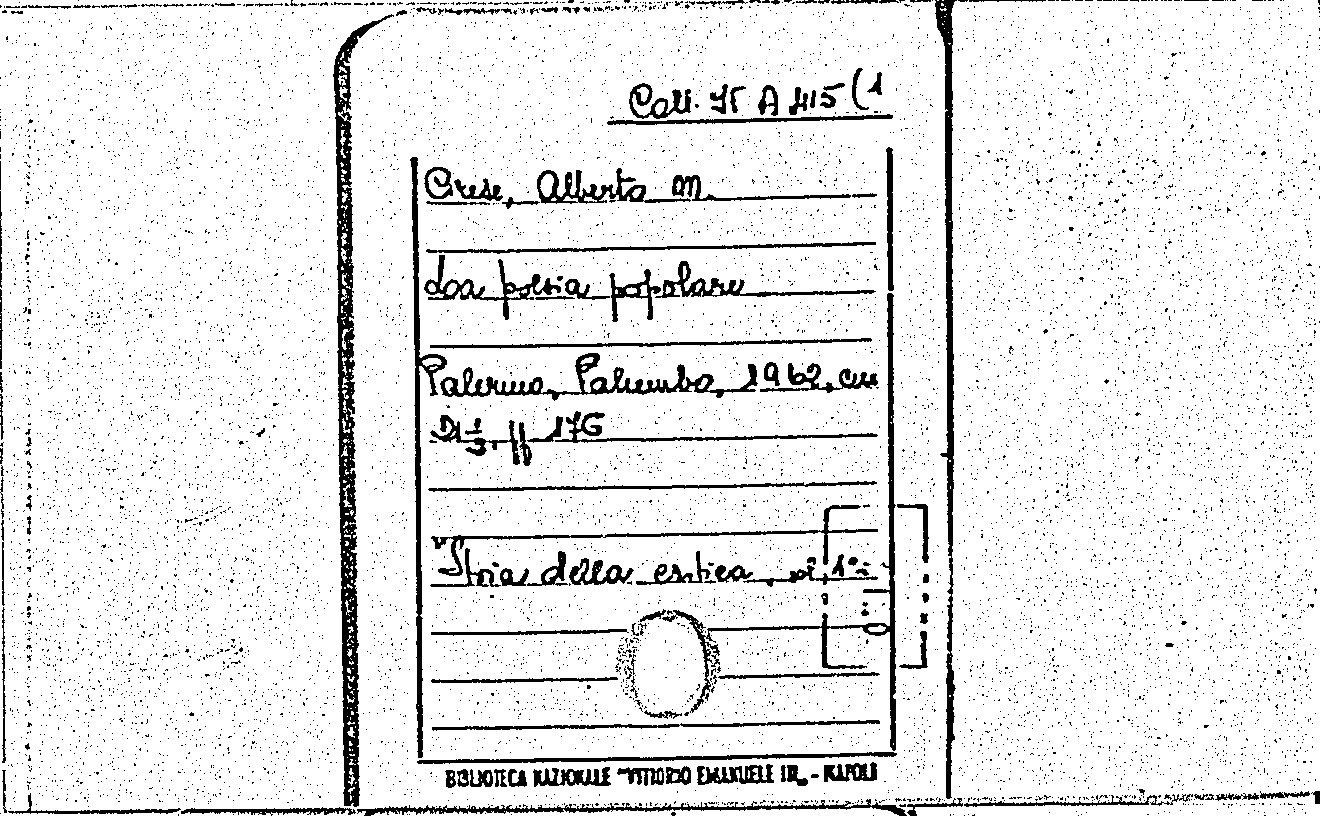 Coll. It A 415 (1
Cirese, Alberto M.
La poesia popolare
Palermo, Palumbo, 1962, cm
21 1/3. pp 176
"Storia della critica, n° 1"
BIBLIOTECA NAZIONALE "VITTORIO EMANUELE III„ - NAPOLI